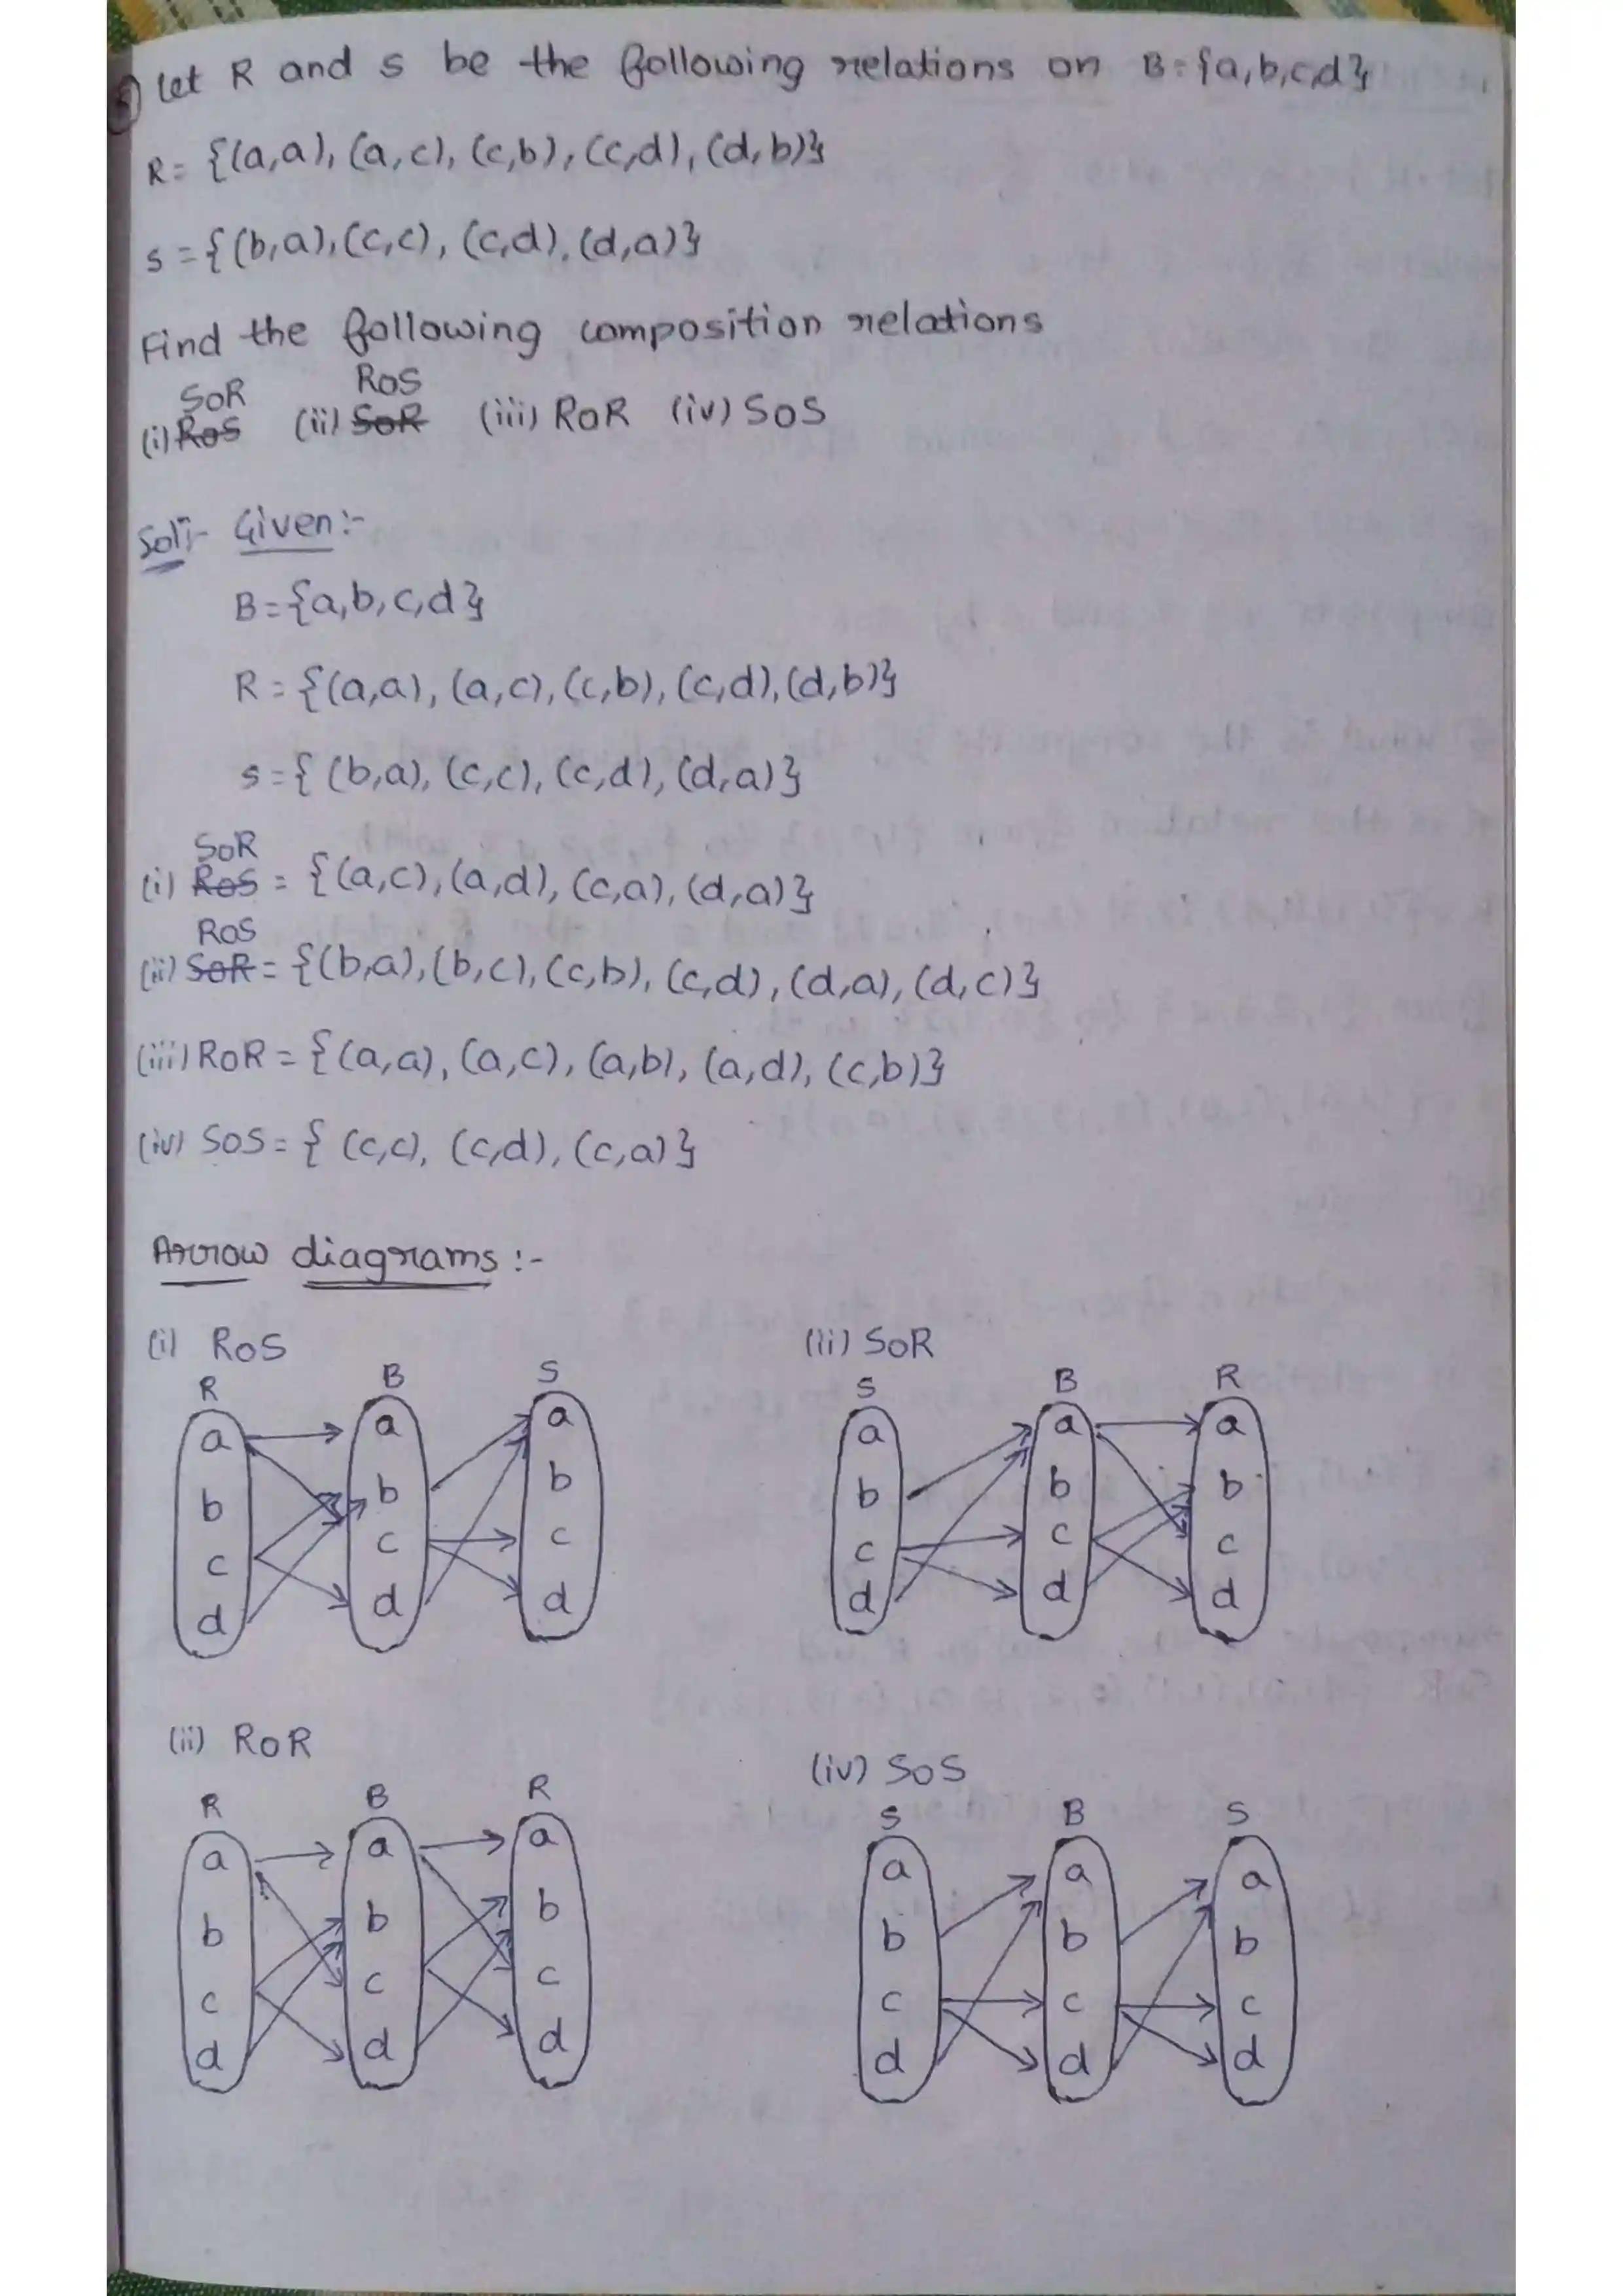 Let R and S be the following relations on B={a,b,c,d}
R= {(a,a), (a,c), (c,b), (c,d), (d,b)}
S={(b,a),(c,c), (c,d), (d,a)}
Find the following composition relations
SoR RoS
(i) RoS (ii) SoR (iii) RoR (iv) SoS
Sol:- Given:-
B={a,b,c,d}
R={(a,a), (a,c), (c,b), (c,d), (d,b)}
S={(b,a), (c,c), (c,d), (d,a)}
SoR
(i) RoS = {(a,c),(a,d), (c,a), (d,a)}
RoS
(ii) SoR= {(b,a),(b,c), (c,b), (c,d), (d,a), (d,c)}
(iii) RoR = {(a,a), (a,c), (a,b), (a,d), (c,b)}
(iv) SoS= { (c,c), (c,d), (c,a)}
Arrow diagrams :-
(i) RoS
R B S
a a a
b b b
c c c
d d d
(ii) SoR
S B R
a a a
b b b
c c c
d d d
(ii) RoR
R B R
a a a
b b b
c c c
d d d
(iv) SoS
S B S
a a a
b b b
c c c
d d d